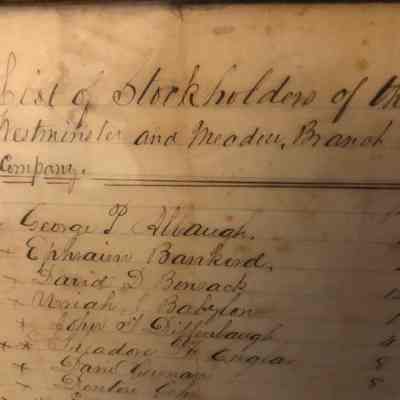 List of Stockholders of the
Westminster and Meadow Branch
Company.
George P. Albaugh.
Ephraim Bankerd.
David D. Bonsack
Uriah Babylon
John T Diffenbaugh
David
Denton